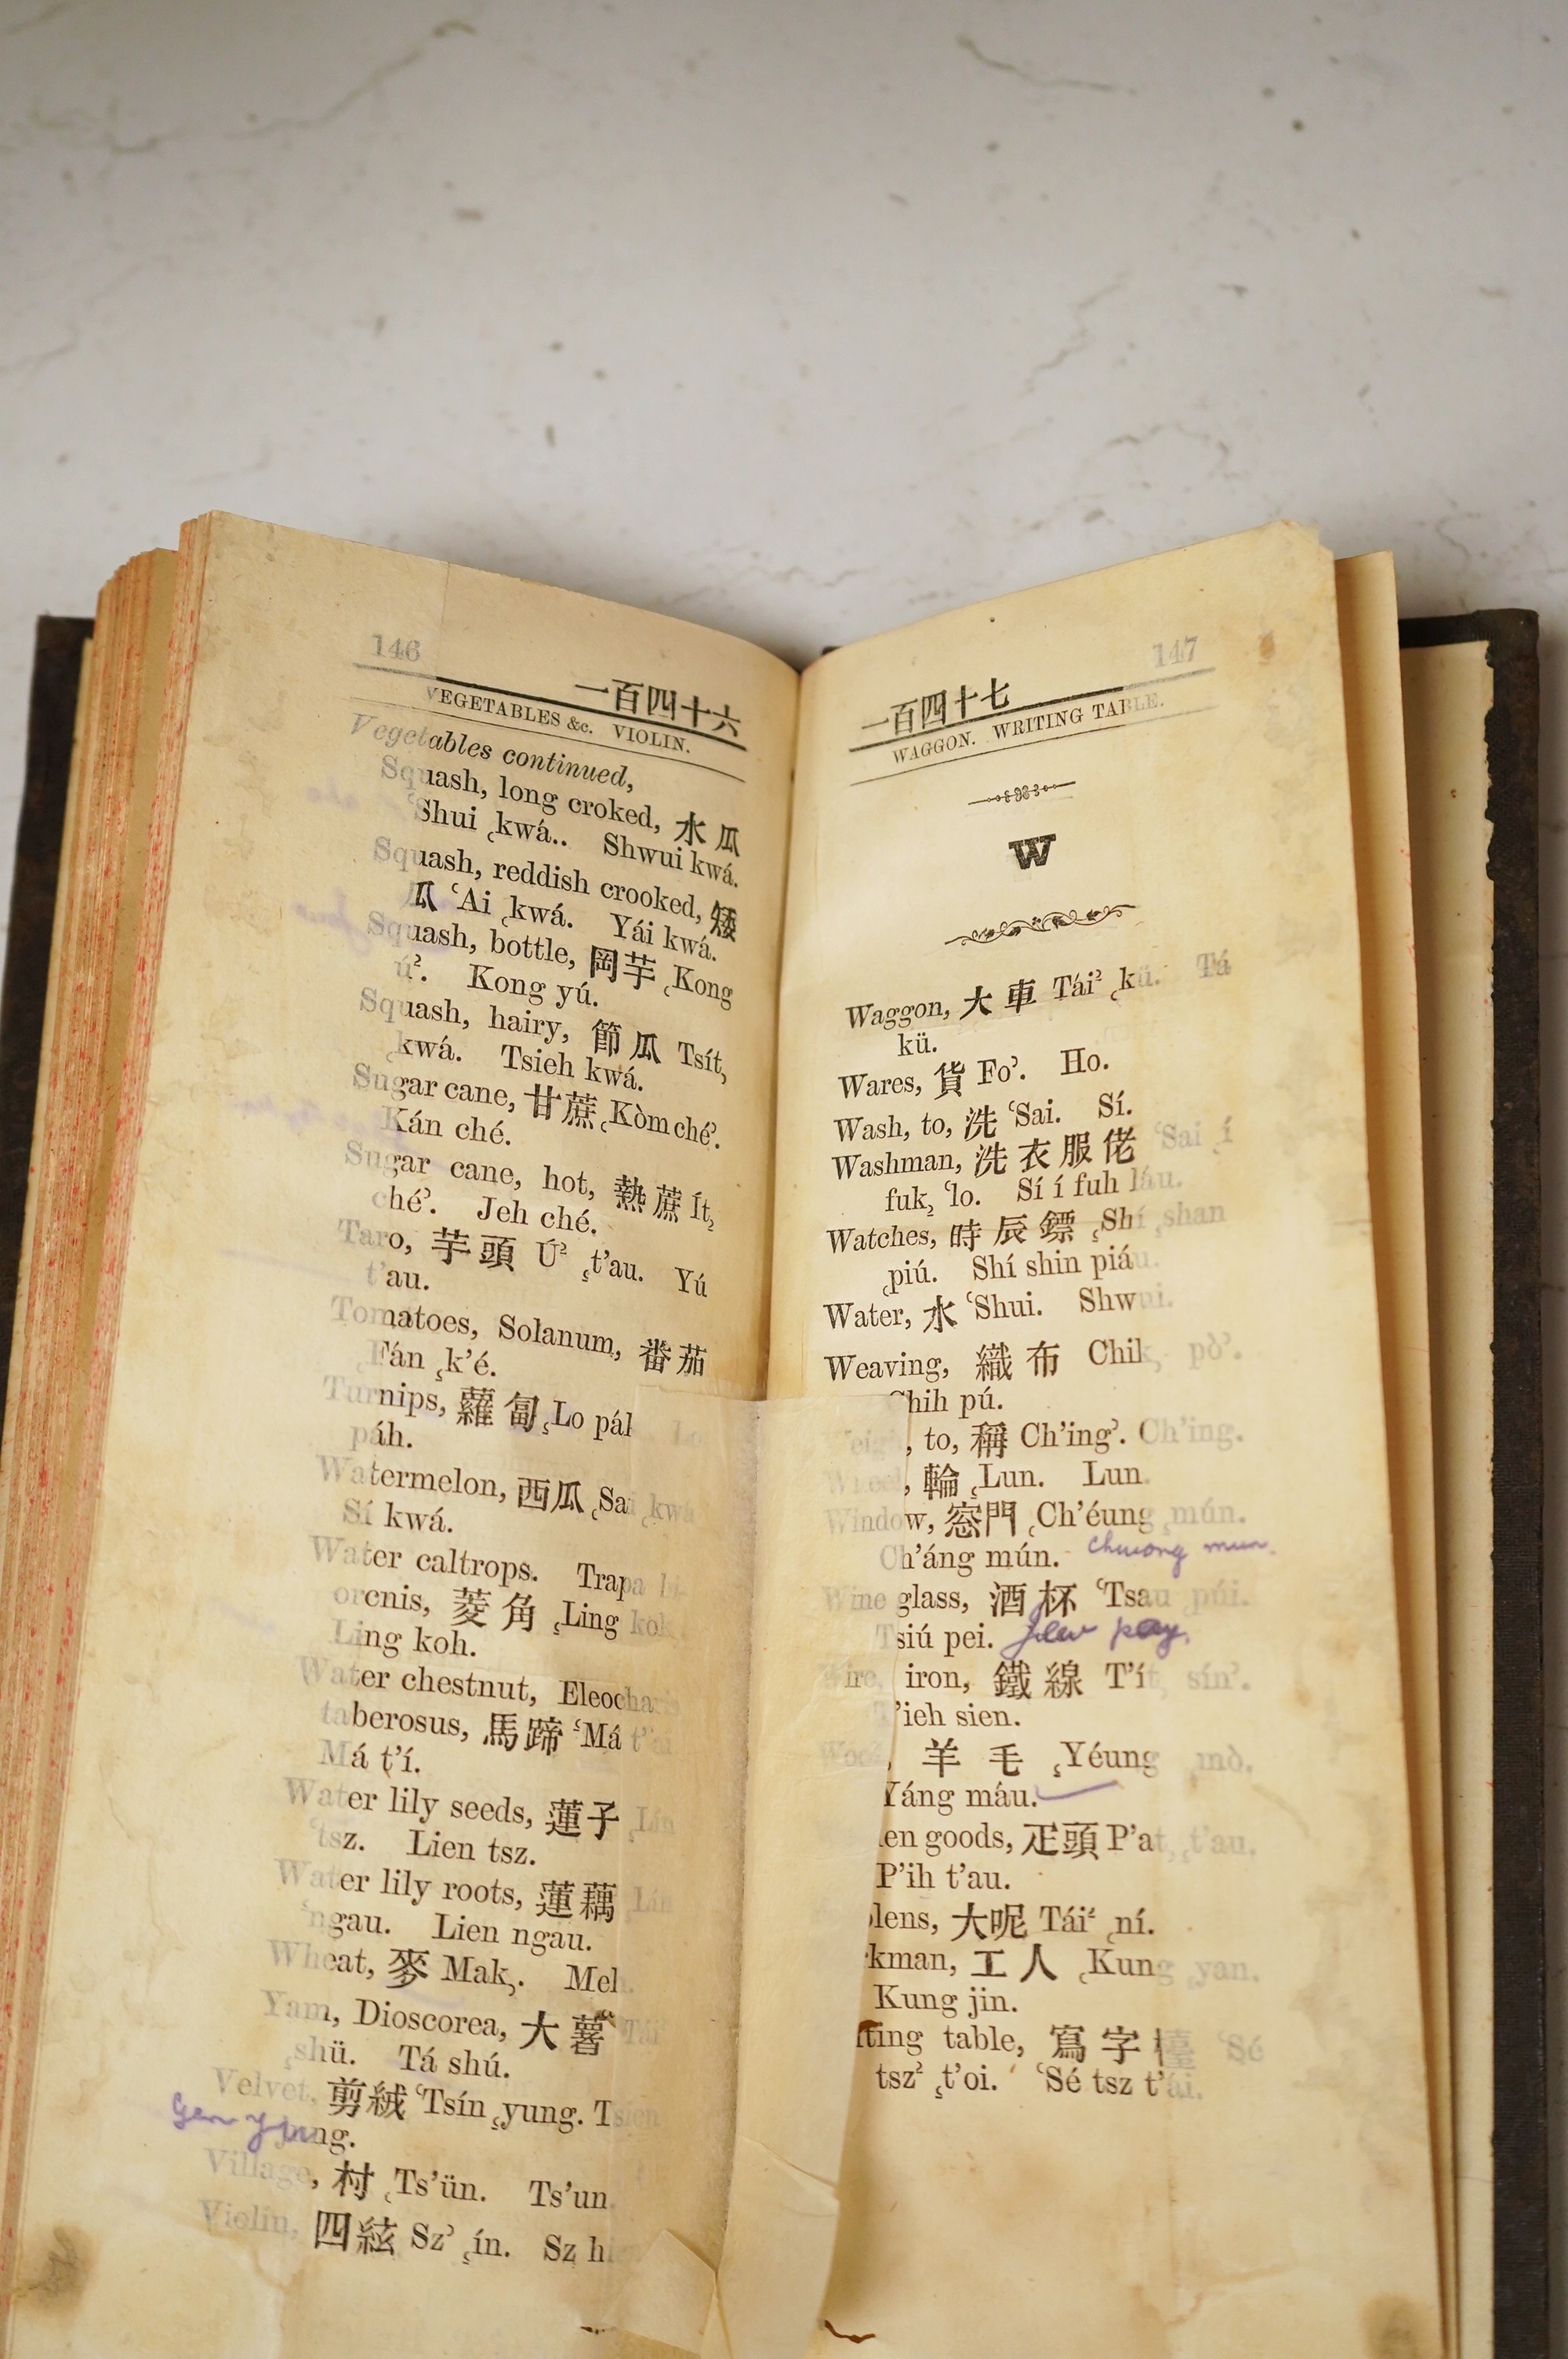 146
一百四十六
VEGETABLES &c. VIOLIN.
Vegetables continued,
Squash, long croked, 水瓜
ʿShui ͺkwá.. Shwui kwá.
Squash, reddish crooked, 矮
瓜 ʿAi ͺkwá. Yái kwá.
Squash, bottle, 岡芋 ͺKong
ú². Kong yú.
Squash, hairy, 節瓜 Tsít,
ͺkwá. Tsieh kwá.
Sugar cane, 甘蔗 ͺKòm chéʾ.
Kán ché.
Sugar cane, hot, 熱蔗 Ít,
chéʾ. Jeh ché.
Taro, 芋頭 Ú² ͺt'au. Yú
t'au.
Tomatoes, Solanum, 番茄
ͺFán ͺk'é.
Turnips, 蘿匐 ͺLo páh Lo
páh.
Watermelon, 西瓜 ͺSai ͺkwá
Sí kwá.
Water caltrops. Trapa
orcnis, 菱角 ͺLing kok,
Ling koh.
Water chestnut, Eleocharis
taberosus, 馬蹄 ʿMá t'ai
Má t'í.
Water lily seeds, 蓮子 ͺLín
ʿtsz. Lien tsz.
Water lily roots, 蓮藕 ͺLín
ʿngau. Lien ngau.
Wheat, 麥 Mak,. Meh.
Yam, Dioscorea, 大薯 Tái²
ͺshü. Tá shú.
Velvet, 剪絨 ʿTsín ͺyung. Tsien
yung.
Village, 村 ͺTs'ün. Ts'un
Violin, 四絃 Szʾ ͺín. Sz
147
一百四十七
WAGGON. WRITING TABLE.
W
Waggon, 大車 Tái² ͺkü. Tá
kü.
Wares, 貨 Foʾ. Ho.
Wash, to, 洗 ʿSai. Sí.
Washman, 洗衣服佬 ʿSai ͺí
fuk, ʿlo. Sí í fuh láu.
Watches, 時辰鏢 ͺShí ͺshan
ͺpiú. Shí shin piáu.
Water, 水 ʿShui. Shwui.
Weaving, 織布 Chik, pòʾ.
Chih pú.
Weigh, to, 稱 Ch'ingʾ. Ch'ing.
Wheel, 輪 ͺLun. Lun.
Window, 窓門 ͺCh'éung ͺmún.
Ch'áng mún. Chuong mun.
Wine glass, 酒杯 ʿTsau ͺpúi.
Tsiú pei.
Wire, iron, 鐵線 T'ít, sínʾ.
T'ieh sien.
Wool, 羊毛 ͺYéung ͺmò.
Yáng máu.
en goods, 疋頭 P'at, ͺt'au.
P'ih t'au.
lens, 大呢 Tái² ͺní.
kman, 工人 ͺKung ͺyan.
Kung jin.
ting table, 寫字檯 ʿSé
tsz² ͺt'oi. ʿSé tsz t'ái.